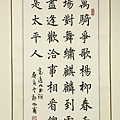 萬騎爭歌楊柳春千
場對舞繡麒麟到處
盡逢歡洽事相看總
是太平人